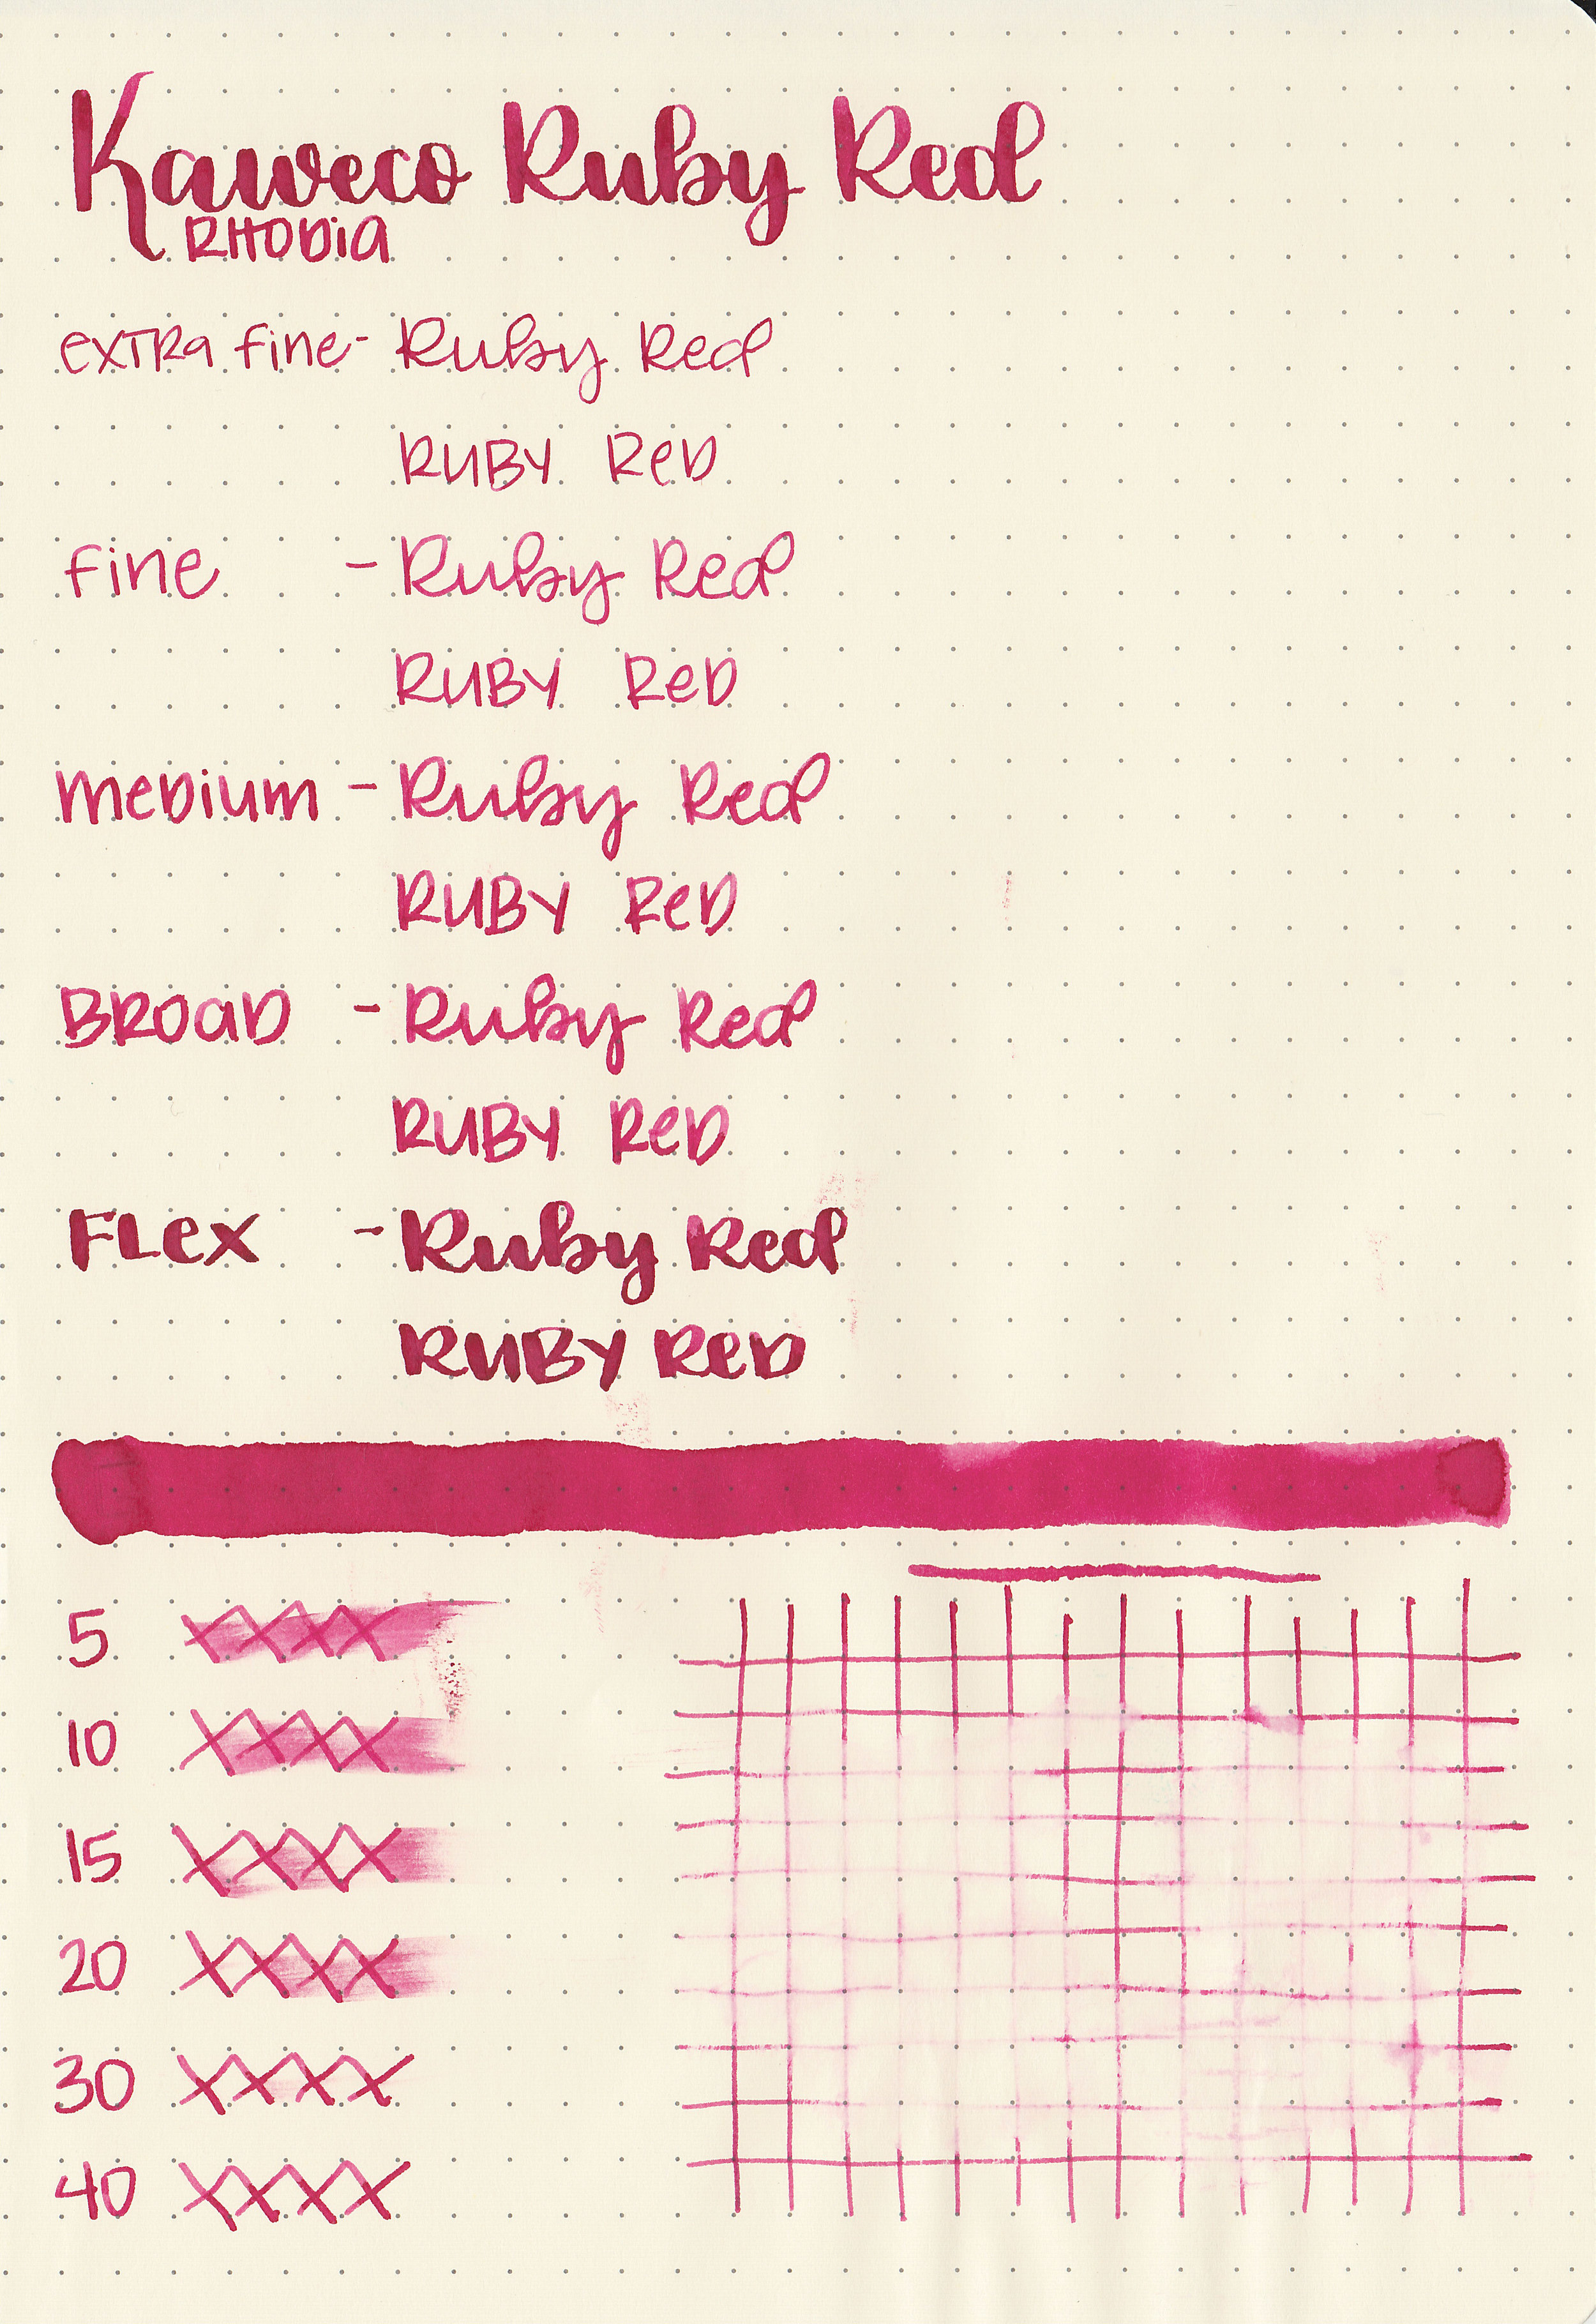 Kaweco Ruby Red
RHODia
exTRa fine - Ruby Red
RUBY ReD
fine - Ruby Red
RUBY ReD
meDium - Ruby Red
RUBY ReD
BROaD - Ruby Red
RUBY ReD
FLex - Ruby Red
RUBY ReD
5 XXXX
10 XXXX
15 XXXX
20 XXXX
30 XXXX
40 XXXX